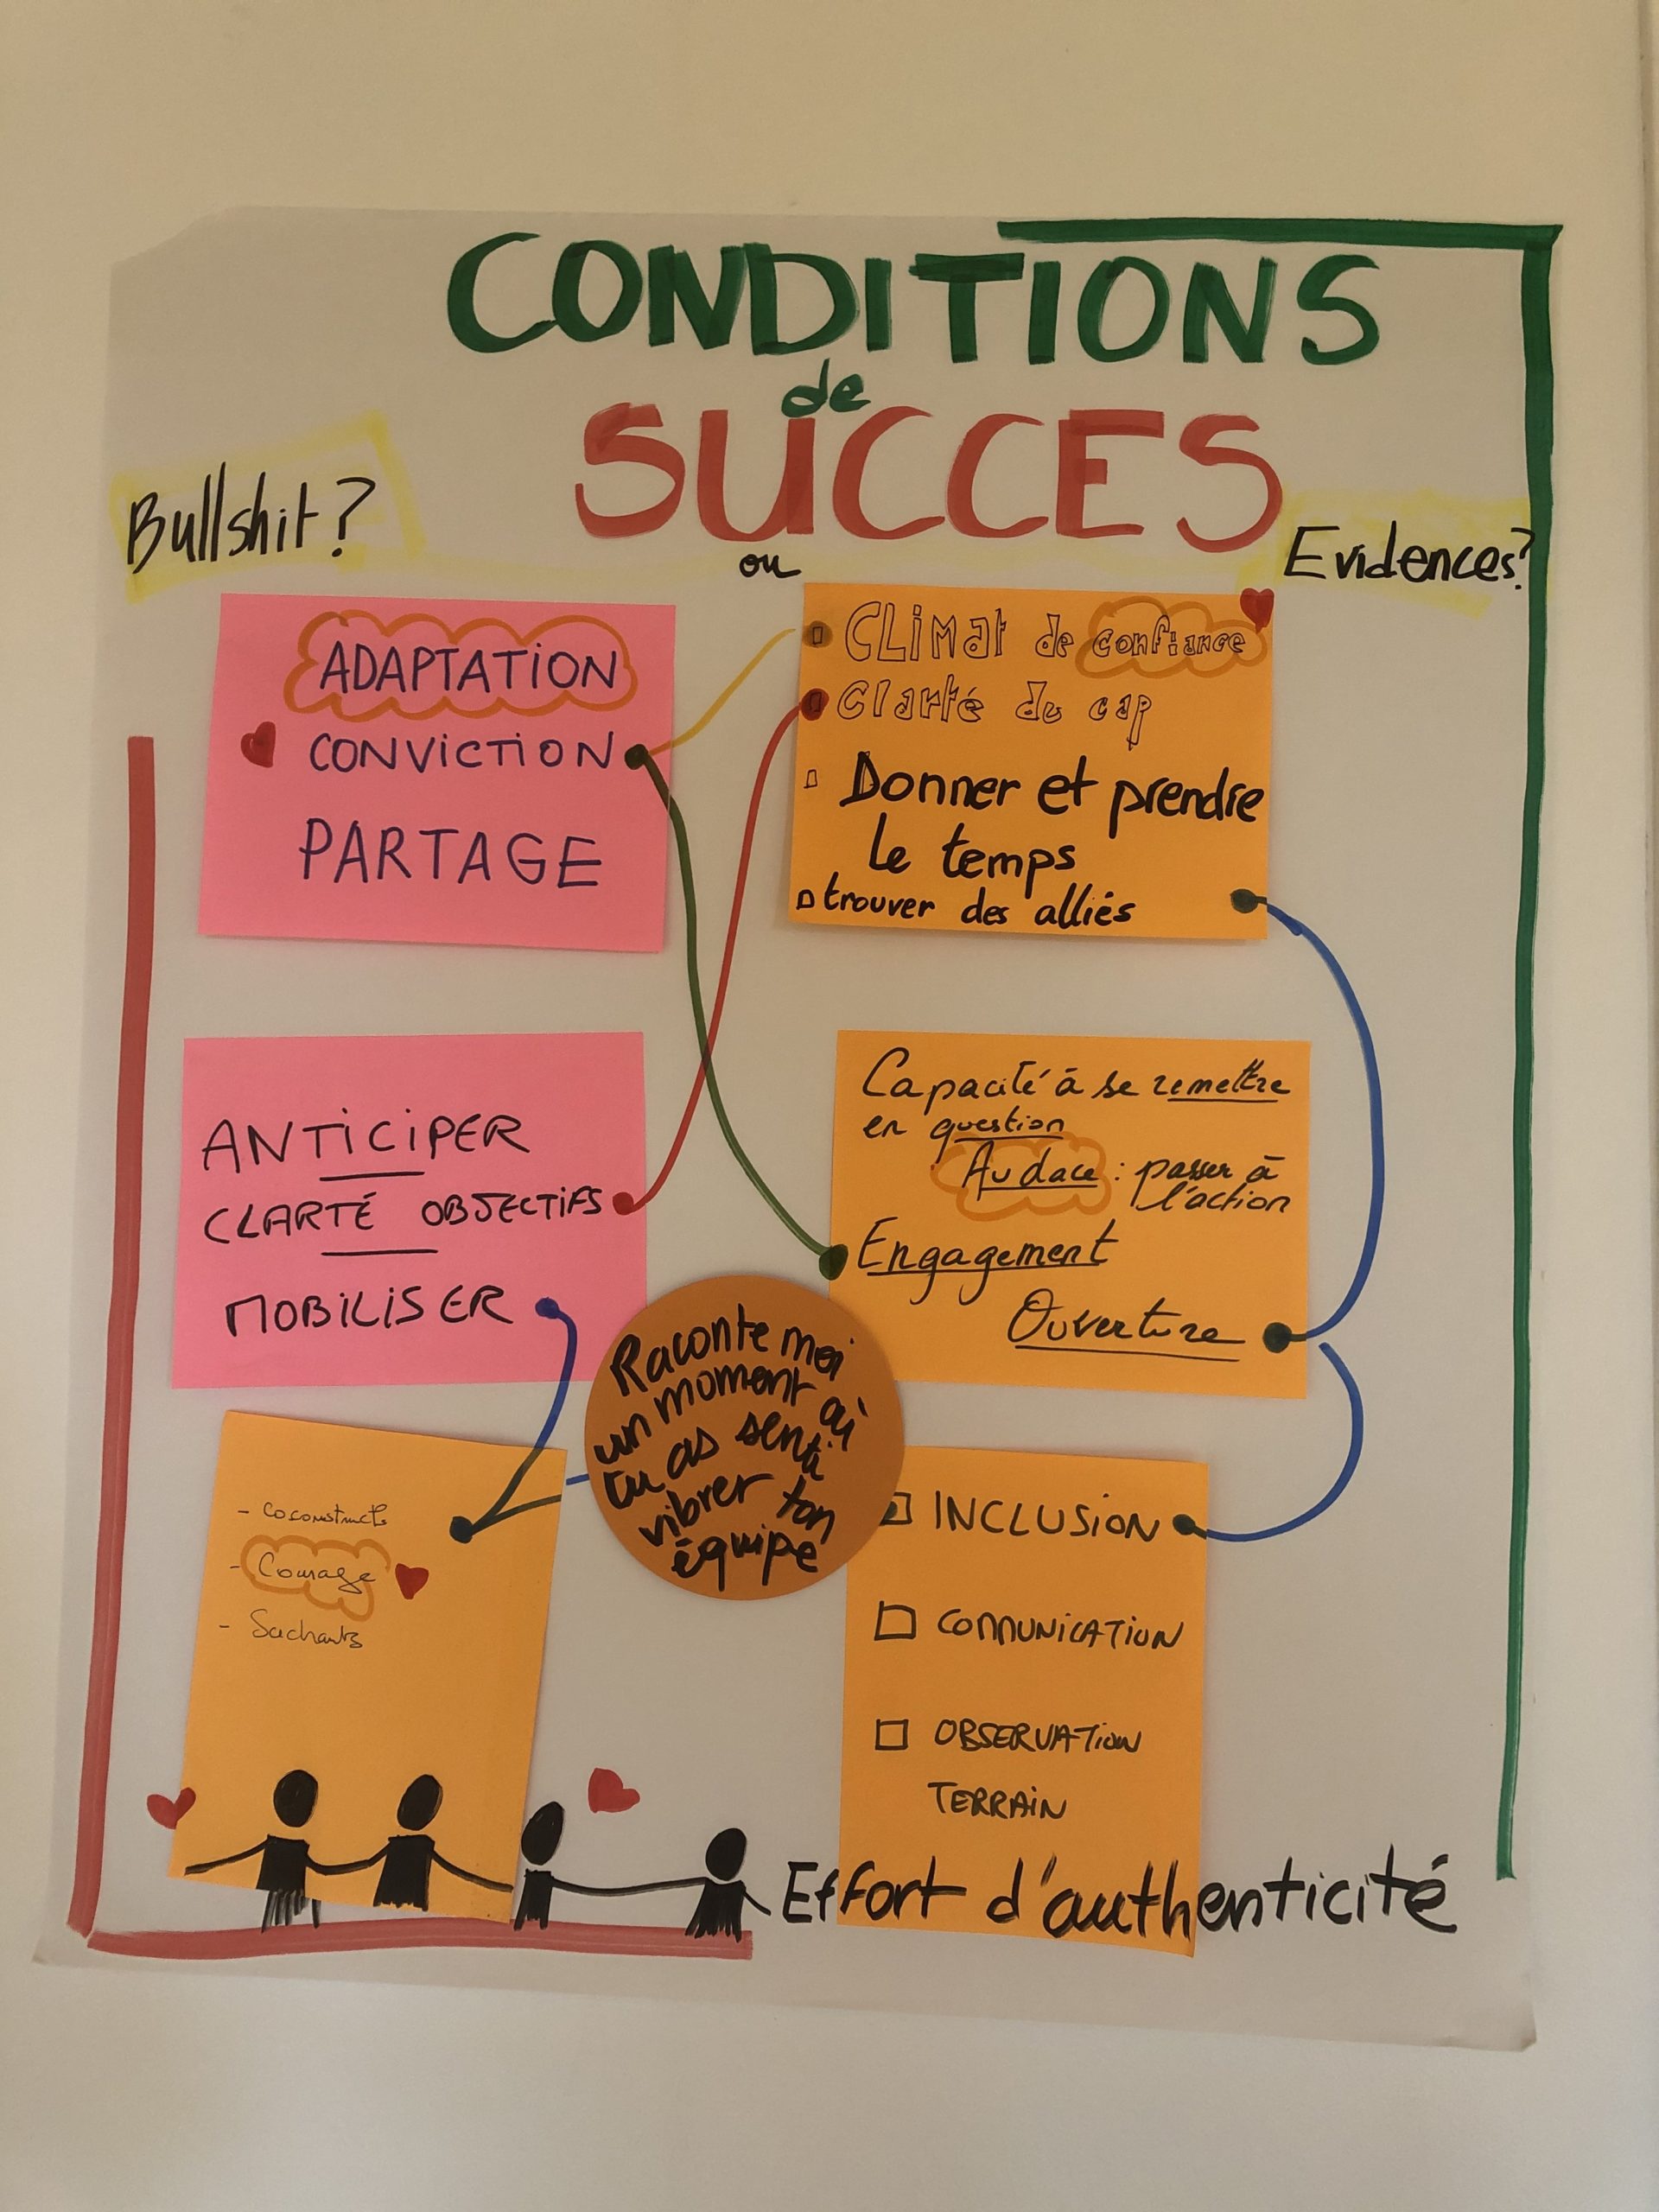 CONDITIONS
de
SUCCES
Bullshit?
ou
Evidences?
ADAPTATION
CONVICTION
PARTAGE
CLIMAT de confiance
Clarté du cap
Donner et prendre
le temps
trouver des alliés
ANTICIPER
CLARTÉ OBJECTIFS
MOBILISER
Capacité à se remettre
en question
Audace : passer à
l'action
Engagement
Ouverture
Raconte moi
un moment où
tu as senti
vibrer ton
équipe
- Courage
- Sachants
INCLUSION
COMMUNICATION
OBSERVATION
TERRAIN
Effort d'authenticité